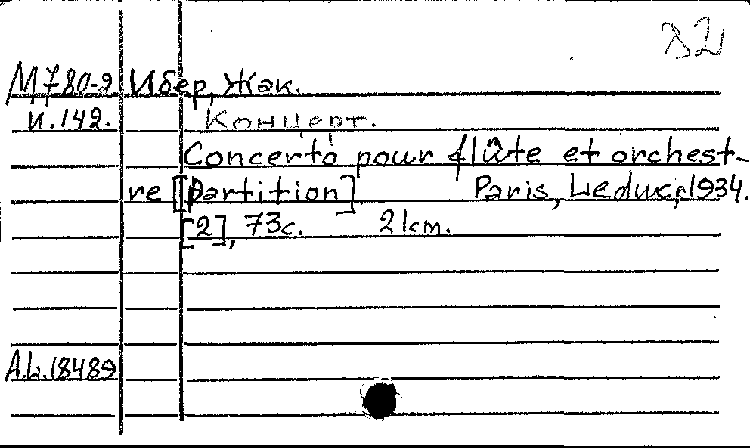 М780-9 Ибер, Жак.
И.142. Концерт.
Concerto pour flûte et orchest-
re [Partition] Paris, Leduc, c1934.
[2], 73c. 2km.
A.L.18489